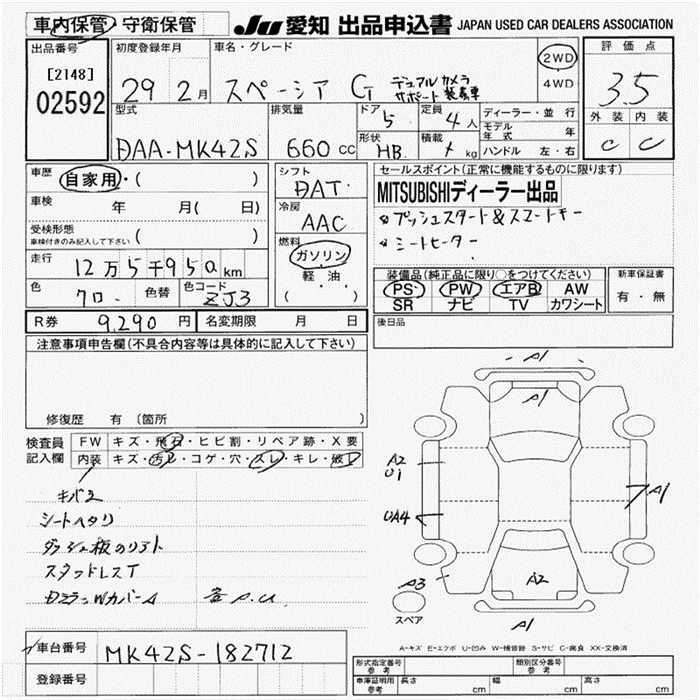 車内保管・守衛保管
JU 愛知 出品申込書 JAPAN USED CAR DEALERS ASSOCIATION
出品番号
[2148]
02592
初度登録年月
29 2月
車名・グレード
スペーシア G デュアルカメラ
サポート装着車
2WD
4WD
評価点
3.5
外装 内装
C C
型式
DAA-MK42S
排気量
660 cc
ドア
5
定員
4人
形状
HB
積載
kg
ディーラー・並行
モデル年式 年
ハンドル 左・右
車歴
自家用・( )
車検 年 月( 日)
受検形態
車検付きのみ記入して下さい ( )
走行
12万5千950km
色
クロ
色替
色コード
ZJ3
シフト
DAT
冷房
AAC
燃料
ガソリン
軽・油
( )
セールスポイント(正常に機能するものに限ります)
MITSUBISHIディーラー出品
プッシュスタート&スマートキー
シートヒーター
装備品(純正品に限り○をつけてください)
PS PW エアB AW
SR ナビ TV カワシート
新車保証書
有・無
R券 9,290円 名変期限 月 日
後日品
注意事項申告欄(不具合内容等は具体的に記入して下さい)
修復歴 有 〔箇所 〕
検査員
記入欄
FW キズ・飛石・ヒビ割・リペア跡・X要
内装 キズ・汚レ・コゲ・穴・スレ・キレ・破レ
シートヘタリ
スタッドレスT
A1
A1
A2
U1
UA4
A1
A3
A2
スペア
A-キズ E-エクボ U-凹み W-補修跡 S-サビ C-腐食 XX-交換済
車台番号 MK42S-182712
登録番号
形式指定番号
参考
類別区分番号
参考
車庫証明用
参考
長さ cm 幅 cm 高さ cm